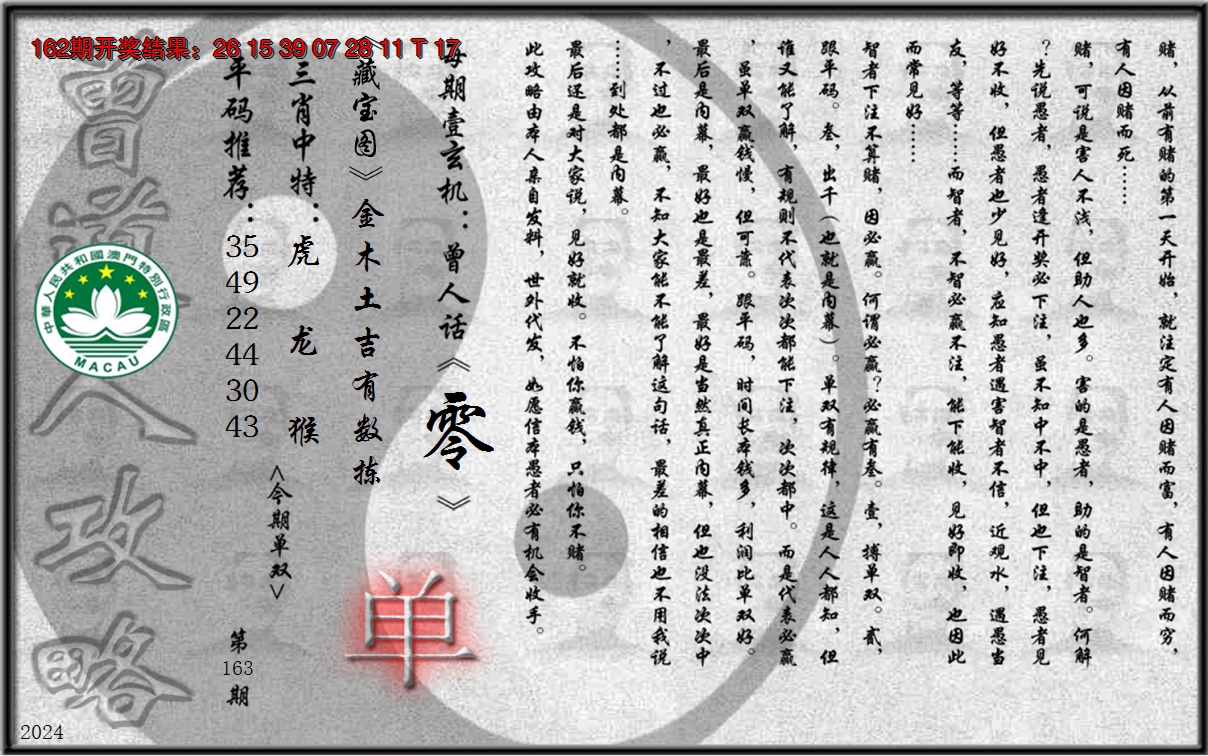 162期开奖结果：26 15 39 07 28 11 T 17
赌，从前有赌的第一天开始，就注定有人因赌而富，有人因赌而穷，
有人因赌而死……
赌，可说是害人不浅，但助人也多。害的是愚者，助的是智者。何解
？先说愚者，愚者逢开奖必下注，虽不知中不中，但也下注，愚者见
好不收，但愚者也少见好，应知愚者遇害智者不信，近观水，遇愚当
友，等等……而智者，不智必赢不注，能下能收，见好即收，也因此
而常见好……
智者下注不算赌，因必赢。何谓必赢？必赢有叁。壹，搏单双。贰，
跟平码。叁，出千（也就是内幕）。单双有规律，这是人人都知，但
谁又能了解，有规则不代表次次都能下注，次次都中。而是代表必赢
，虽单双赢钱慢，但可靠。跟平码，时间长本钱多，利润比单双好。
最后是内幕，最好也是最差，最好是当然真正内幕，但也没法次次中
，不过也必赢，不知大家能不能了解这句话，最差的相信也不用我说
……到处都是内幕。
最后还是对大家说，见好就收。不怕你赢钱，只怕你不赌。
此攻略由本人亲自发料，世外代发，如愿信本愚者必有机会收手。
每期壹玄机：曾人话《零》
《藏宝图》金木土吉有数拣
单
三肖中特：虎 龙 猴
<今期单双>
平码推荐：35 49 22 44 30 43
第163期
曾道人攻略
中華人民共和國澳門特別行政區
MACAU
2024